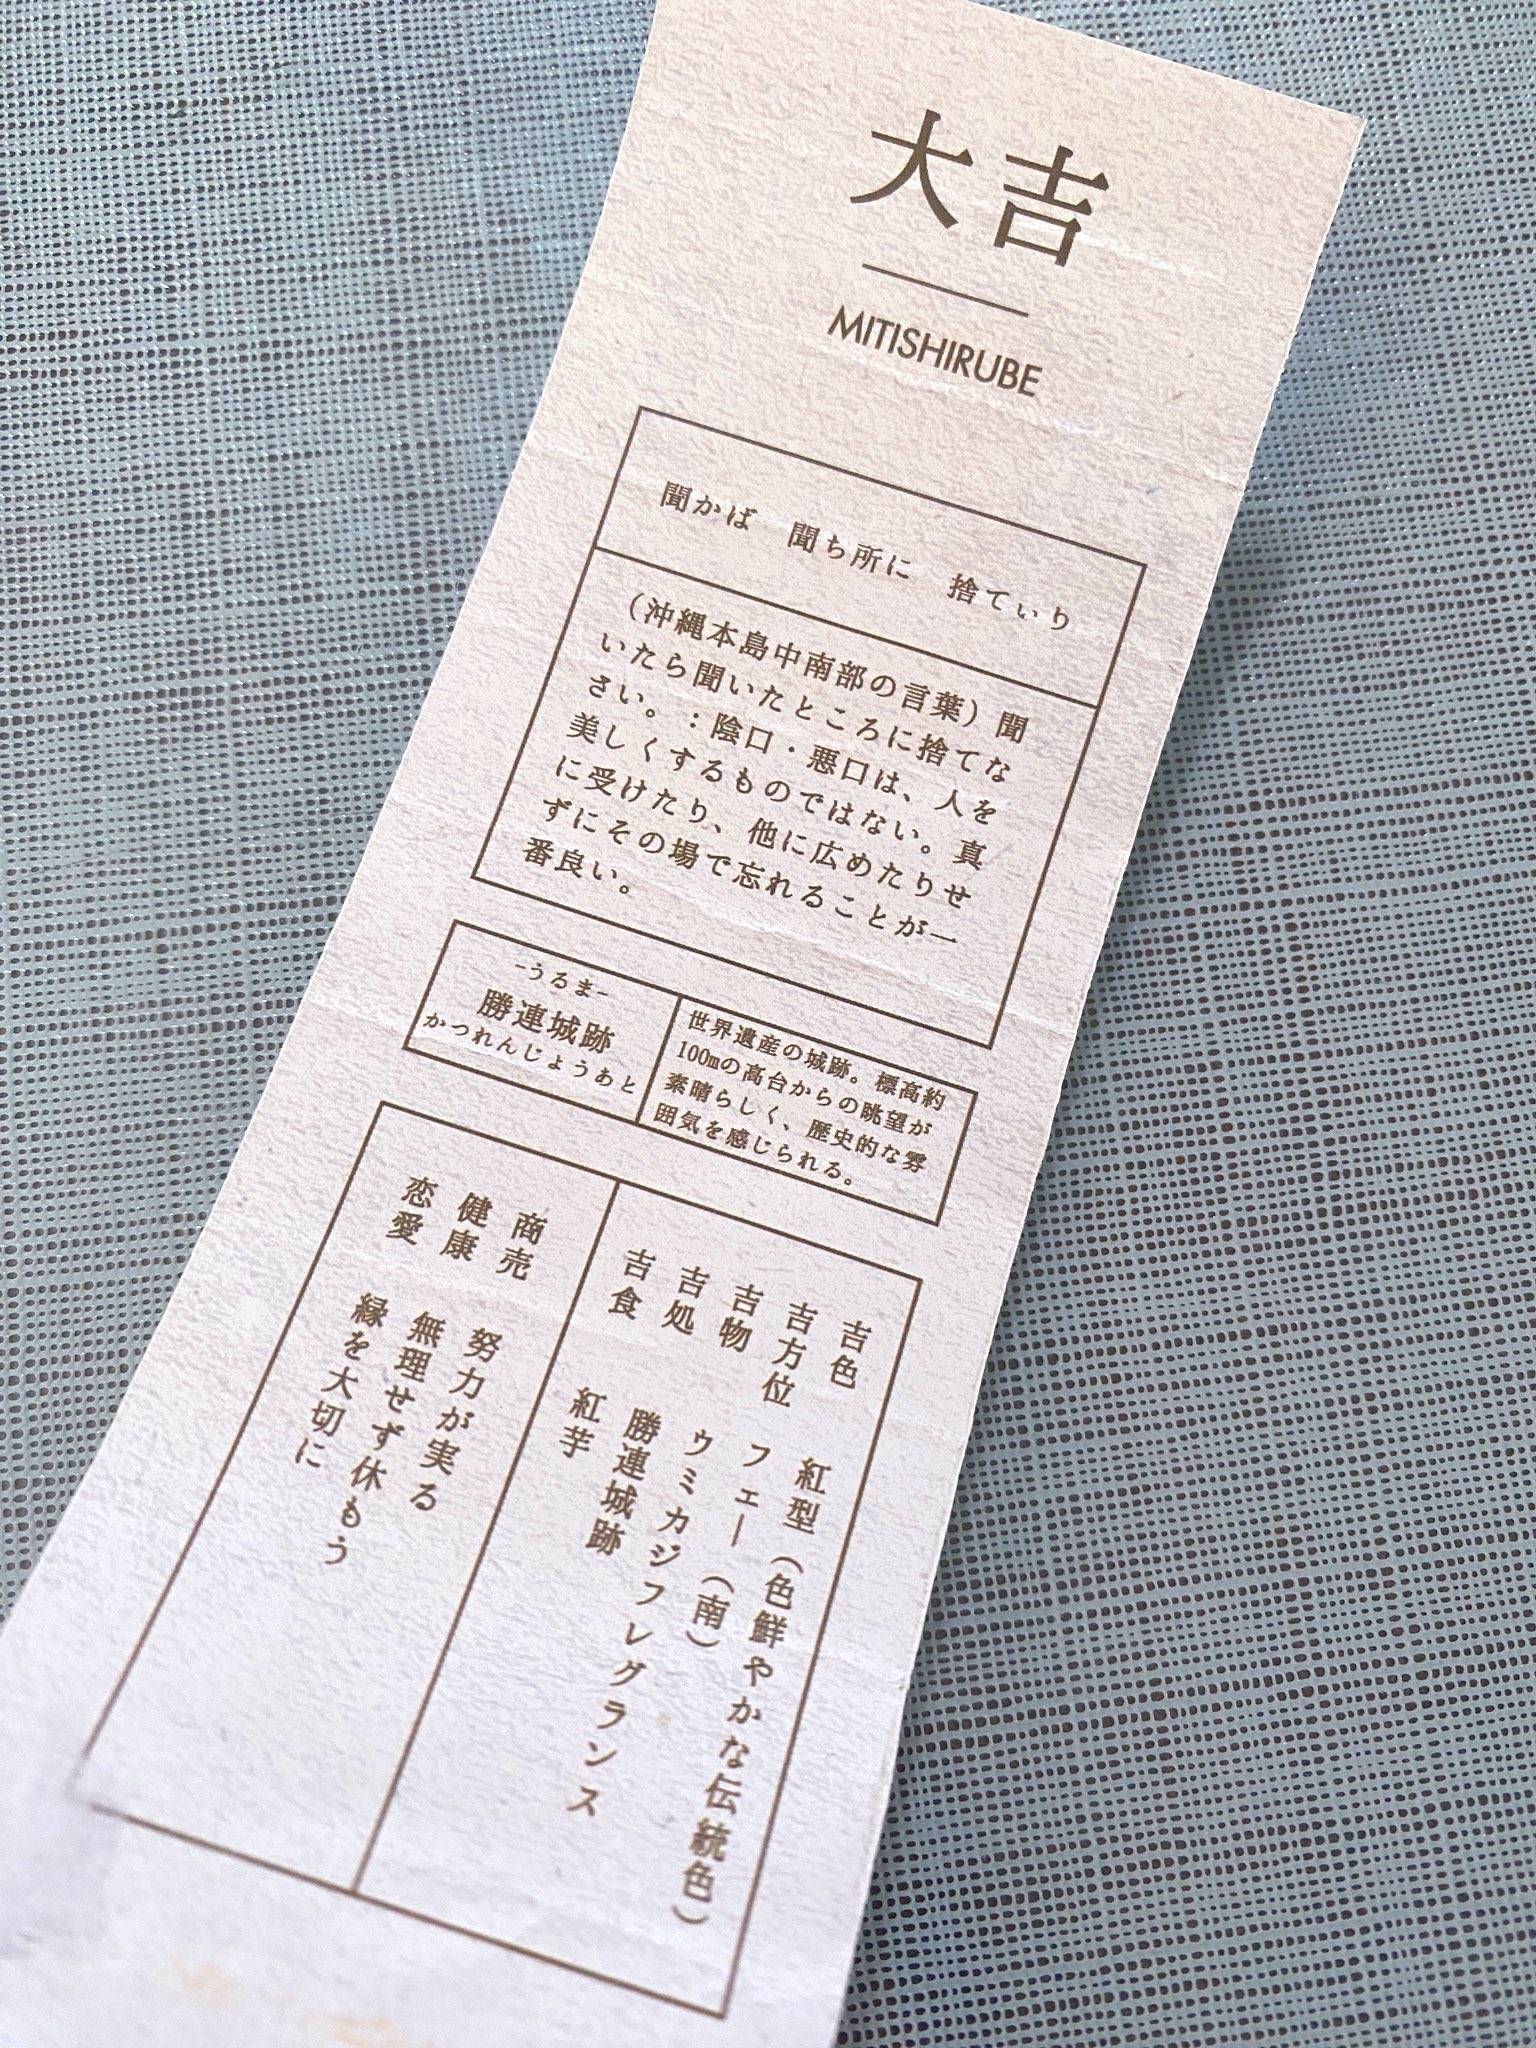 大吉
MITISHIRUBE
聞かば 聞ち所に 捨てぃり
（沖縄本島中南部の言葉）聞
いたら聞いたところに捨てな
さい。：陰口・悪口は、人を
美しくするものではない。真
に受けたり、他に広めたりせ
ずにその場で忘れることが一
番良い。
-うるま-
勝連城跡
かつれんじょうあと
世界遺産の城跡。標高約
100mの高台からの眺望が
素晴らしく、歴史的な雰
囲気を感じられる。
吉色 紅型（色鮮やかな伝統色）
吉方位 フェー（南）
吉物 ウミカジフレグランス
吉処 勝連城跡
吉食 紅芋
商売 努力が実る
健康 無理せず休もう
恋愛 縁を大切に